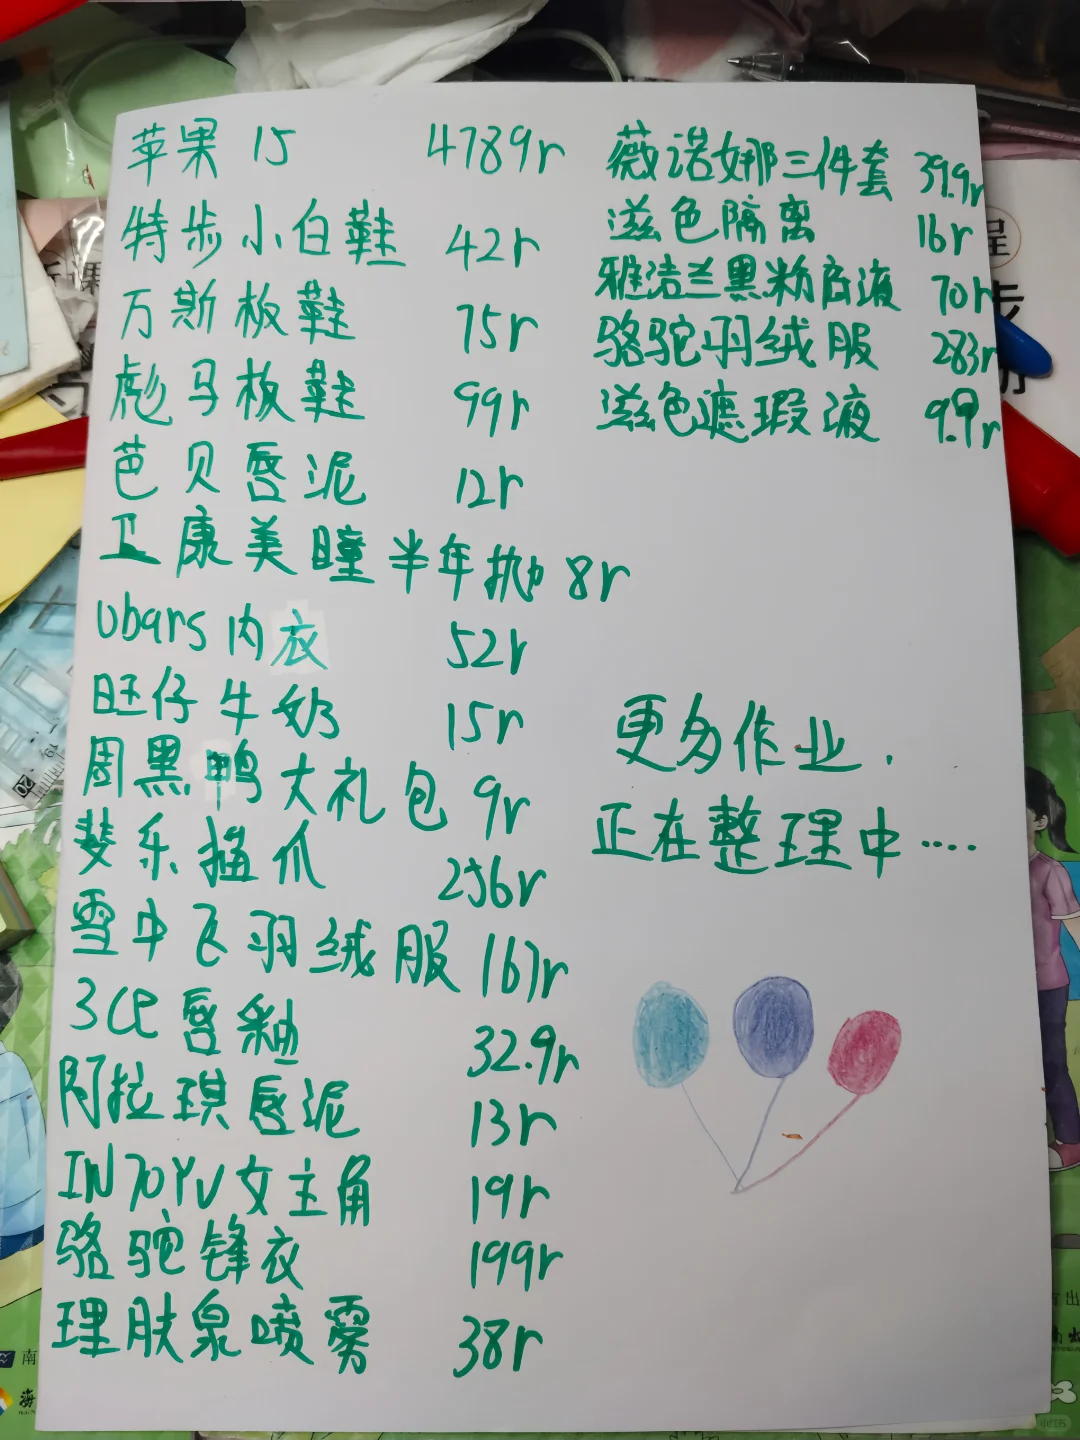 苹果 15 4789r
特步小白鞋 42r
万斯板鞋 75r
彪马板鞋 99r
芭贝唇泥 12r
卫康美瞳半年抛 8r
Ubars内衣 52r
旺仔牛奶 15r
周黑鸭大礼包 9r
斐乐猫爪 256r
雪中飞羽绒服 167r
3CE唇釉 32.9r
阿拉琪唇泥 13r
INTOYU女主角 19r
骆驼锋衣 199r
理肤泉喷雾 38r
薇诺娜三件套 39.9r
滋色隔离 16r
雅洁兰黑粉底液 70r
骆驼羽绒服 283r
滋色遮瑕液 9.9r
更多作业.
正在整理中····
程
南
小红书